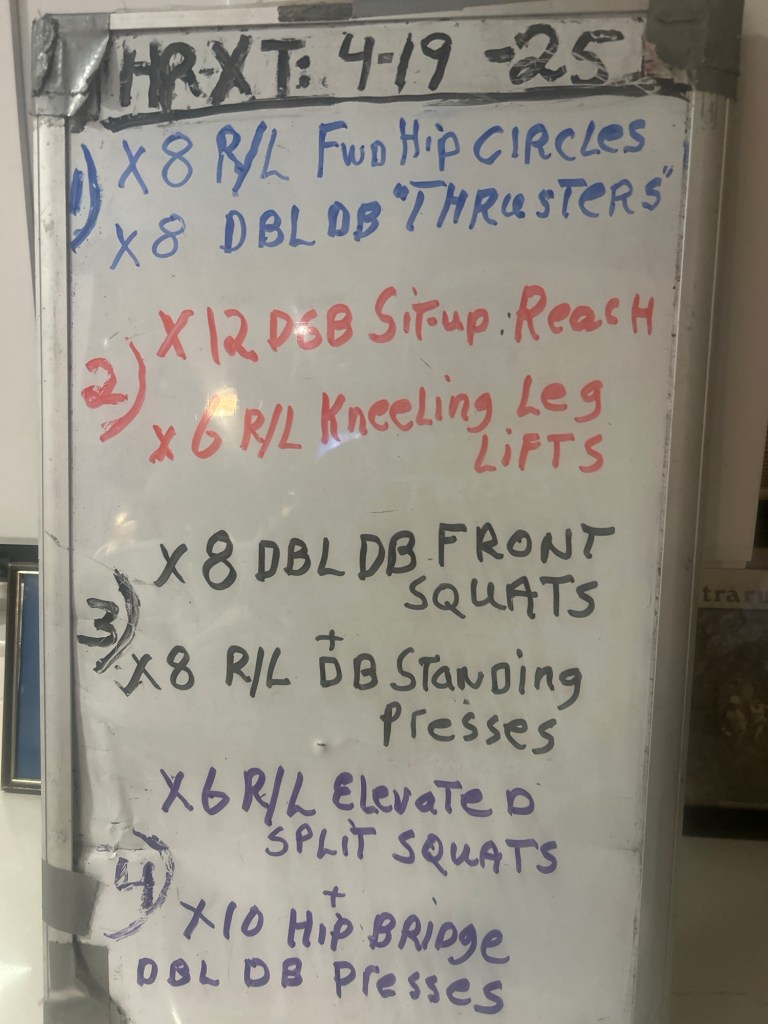 HR-XT: 4-19-25
1) X8 R/L FWD Hip CIRCLES
X8 DBL DB "THRUSTERS"
2) X12 DGB Sit-up: Reach
X6 R/L Kneeling Leg
LIFTS
3) X8 DBL DB FRONT
SQUATS
+
X8 R/L DB Standing
Presses
4) X6 R/L Elevated
SPLIT SQUATS
+
X10 Hip BRIDGE
DBL DB Presses
traru